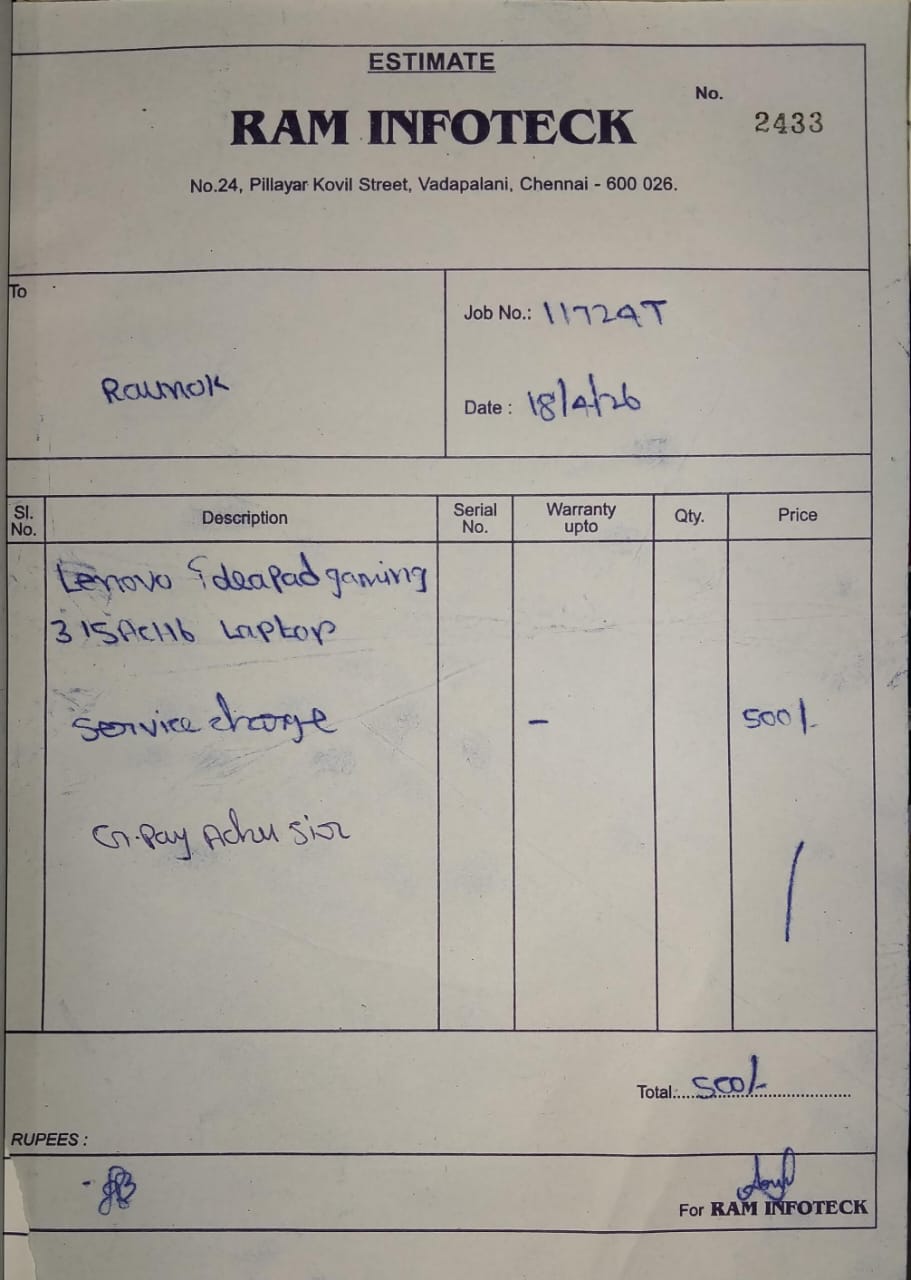 ESTIMATE
No.
RAM INFOTECK
2433
No.24, Pillayar Kovil Street, Vadapalani, Chennai - 600 026.
To
Job No.: 11724T
Raunok
Date : 18/4/26
Sl. No. Description Serial No. Warranty upto Qty. Price
Lenovo ideapad gaming
3 15ACH6 Laptop
Service charge - 500/-
G.Pay Achu Sir
Total: 500/-
RUPEES :
For RAM INFOTECK